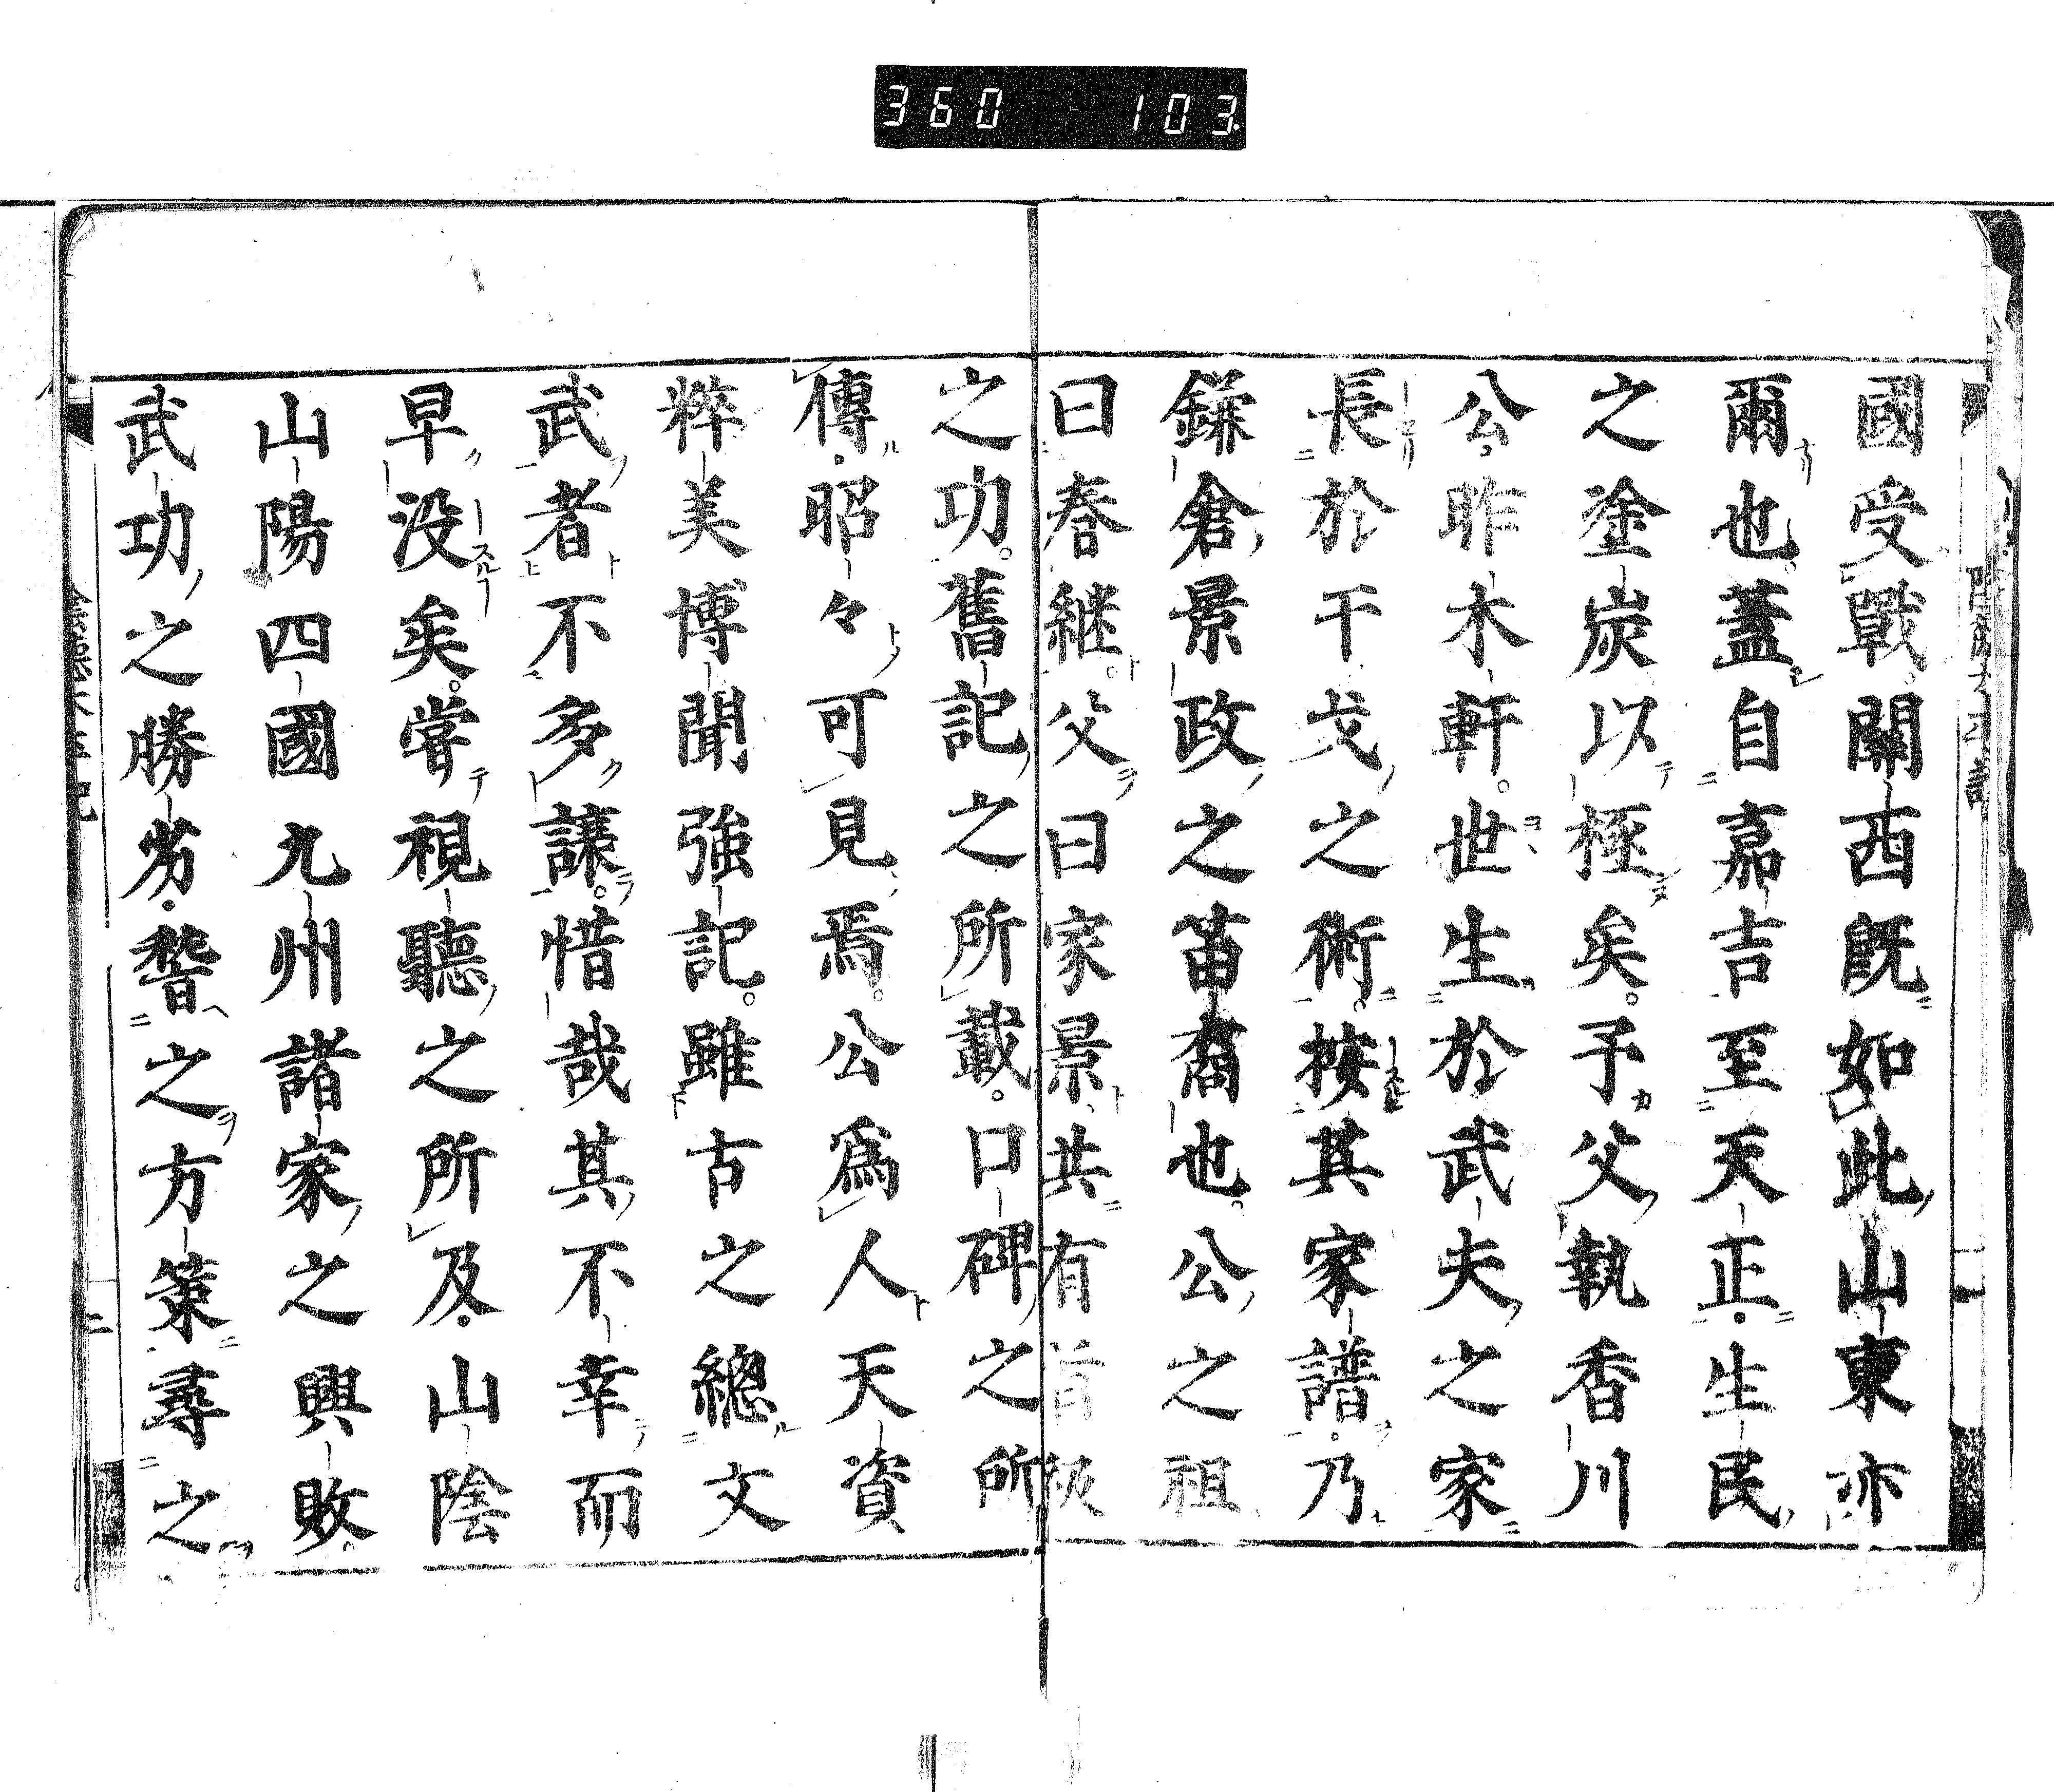 360 103
國受戰。關西既如此山東亦
爾也。蓋自嘉吉至天正生民
之塗炭以極矣。予父執香川
公昨木軒。世生於武夫之家
長於干戈之術。按其家譜。乃
鎌倉景政之苗裔也。公之祖
曰春継。父曰家景共有首級
之功。舊記之所載。口碑之所
傳昭々可見焉。公爲人天資
粹美博聞強記。雖古之總文
武者不多讓。惜哉其不幸而
早没矣。嘗視聽之所及山陰
山陽四國九州諸家之興敗。
武功之勝劣。稽之方策尋之
二